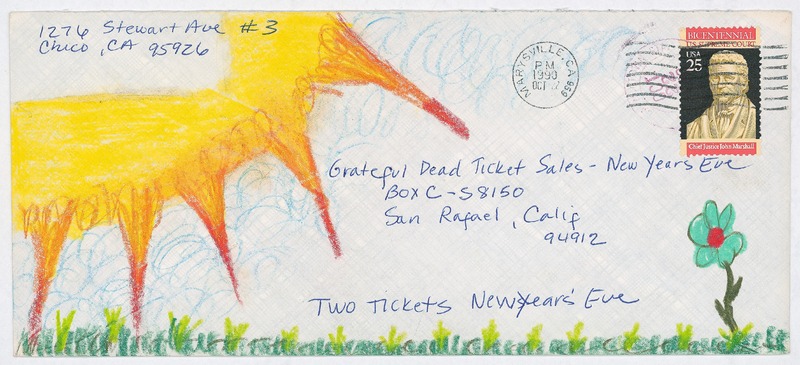 1276 Stewart Ave #3
Chico, CA 95926
MARYSVILLE, CA 959
PM
1990
OCT
BICENTENNIAL
U.S. SUPREME COURT
USA
25
Chief Justice John Marshall
Grateful Dead Ticket Sales - New Years Eve
Box C-S8150
San Rafael, Calif
94912
Two Tickets New Years' Eve